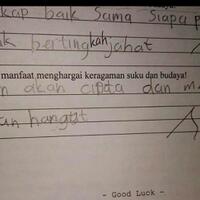 kap baik Sama Siapa P
k bertingkah jahat
manfaat menghargai keragaman suku dan budaya!
n akan cipta dan m
an hangat
- Good Luck -